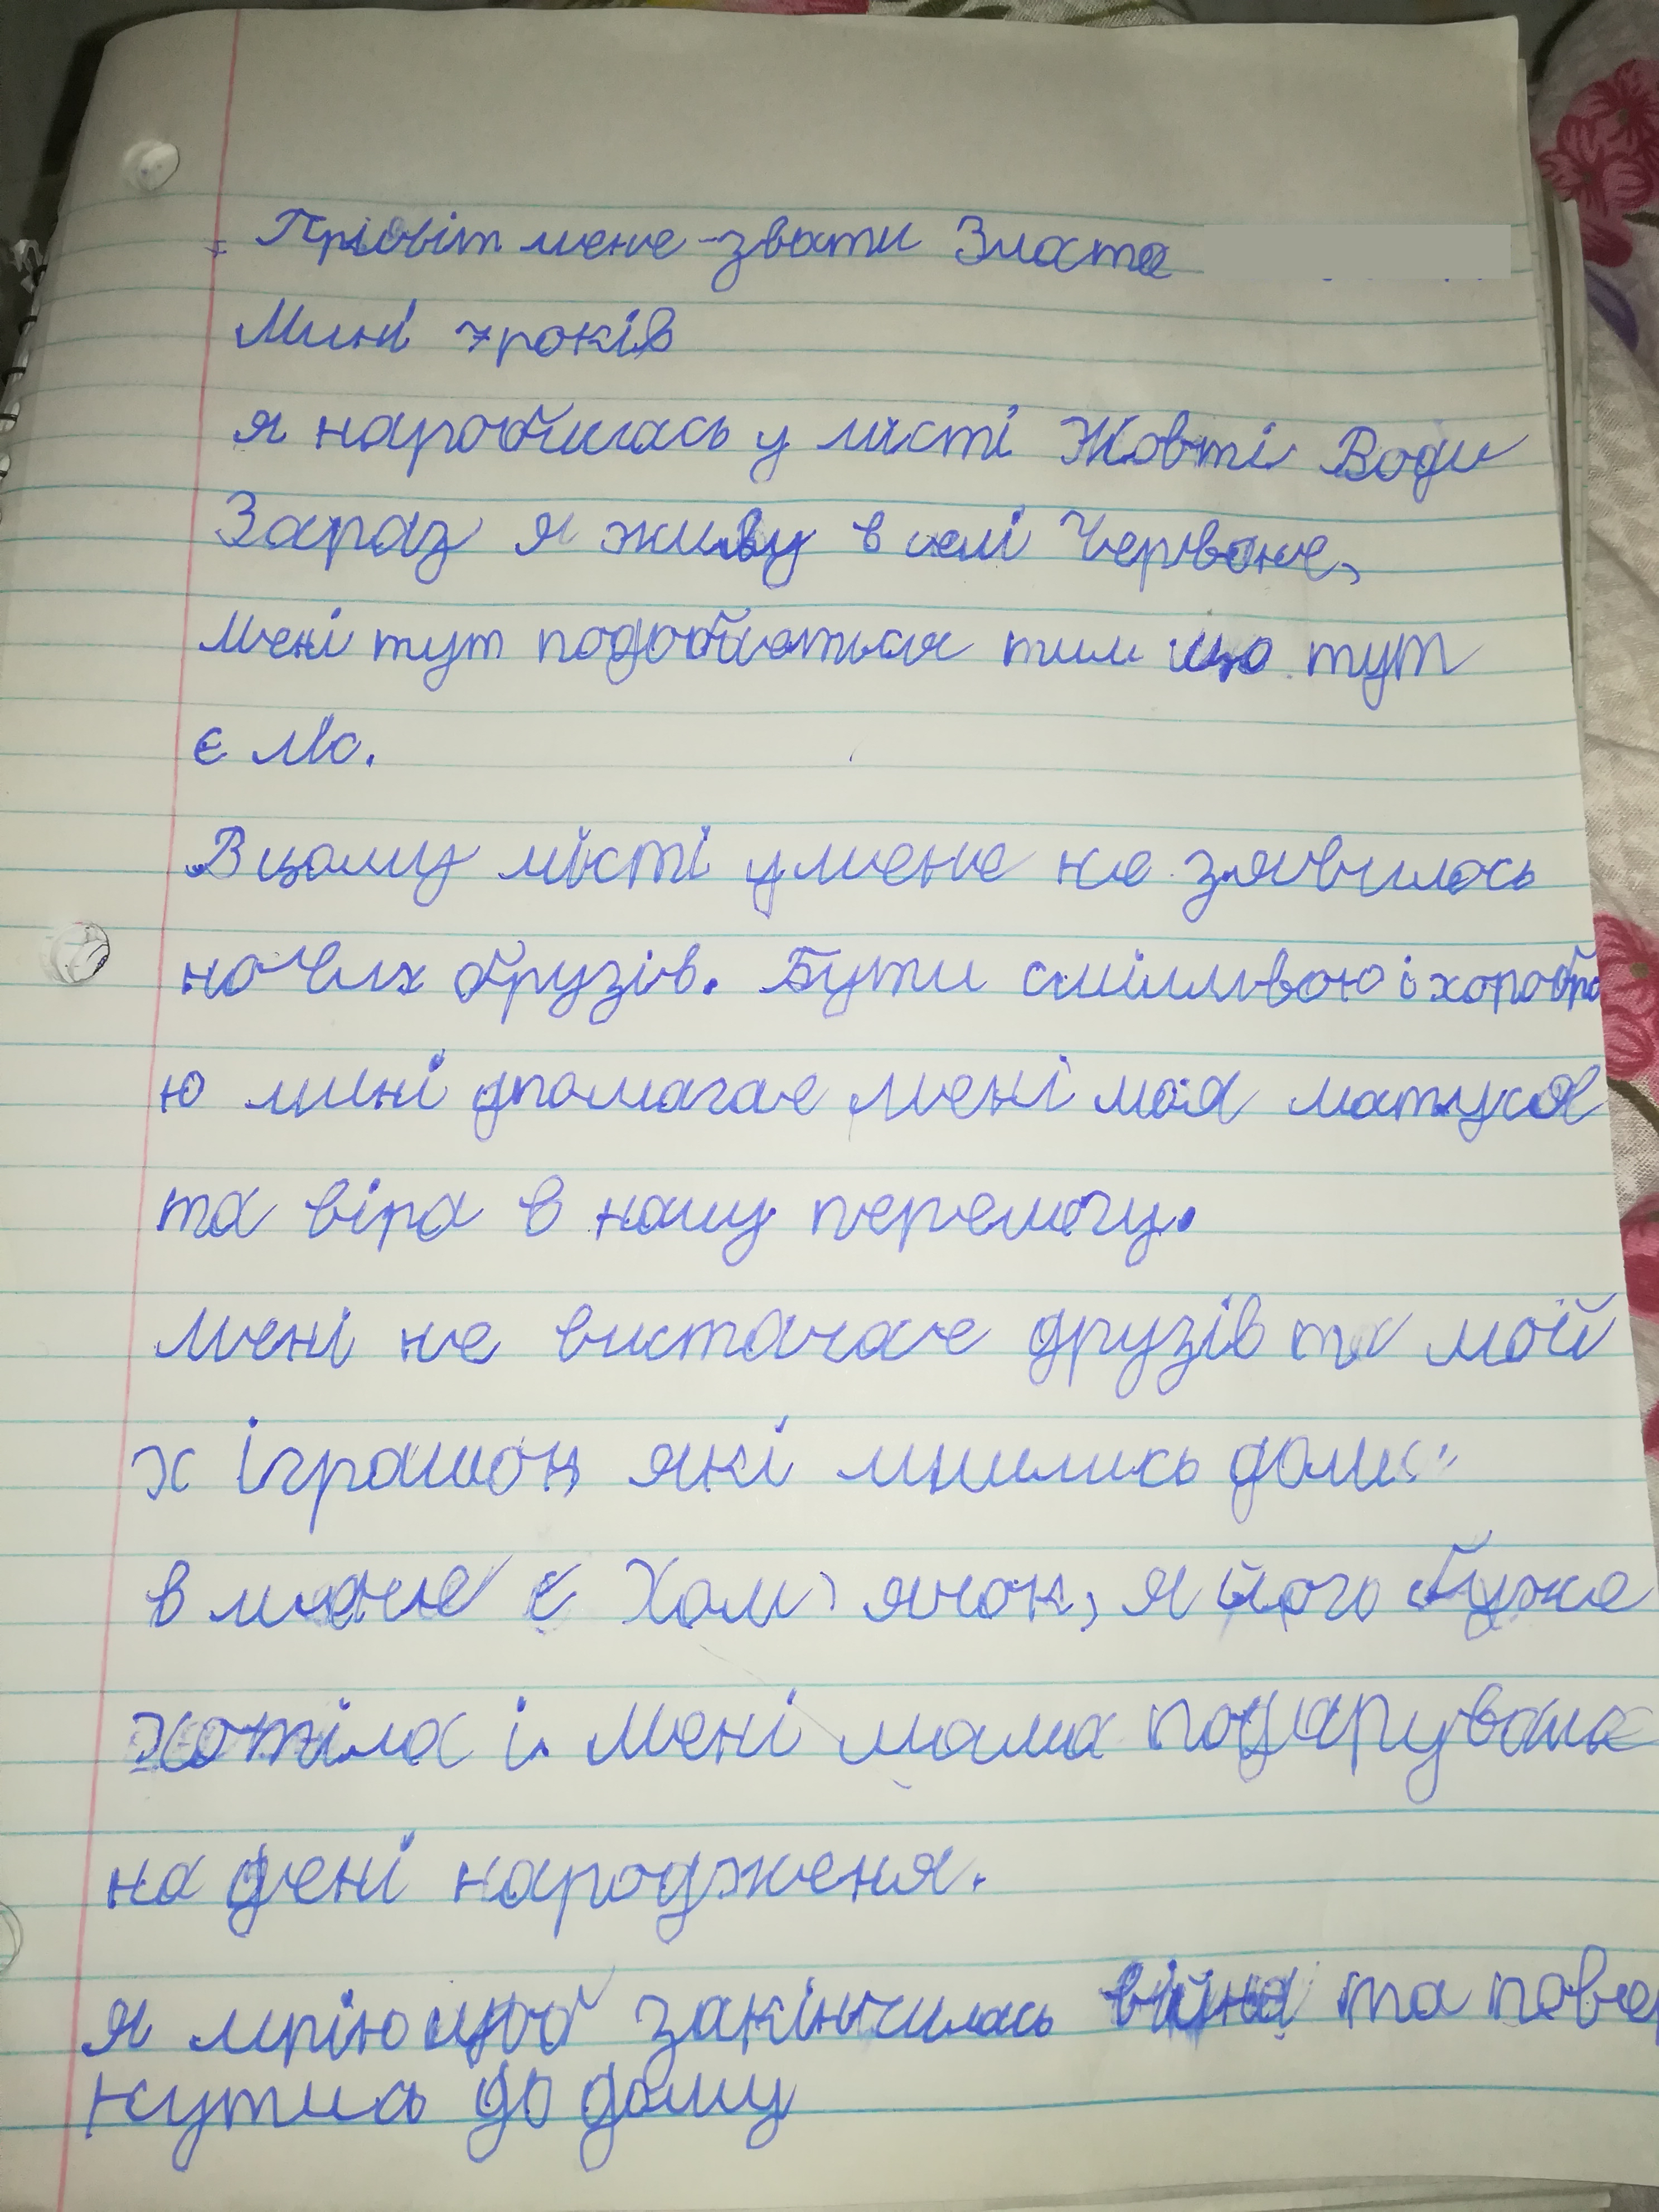 Прівіт мене звати Злата
Мині 7 років
я народилась у місті Жовті Води
Зараз я живу в селі Червоне,
мені тут подобається тим що тут
є ліс.
В цому місті у мене не зявилось
нових друзів. Бути сміливою і хоробро
ю мині дпомагає мені моя матуся
та віра в нашу перемогу.
мені не вистачає друзів та мої
х іграшок які лишились дома
в мене є Хом'ячок, я його дуже
хотіла і мені мама подарувала
на дені народженя.
я мрію щоб закінчилась війна та повер
нутись до дому